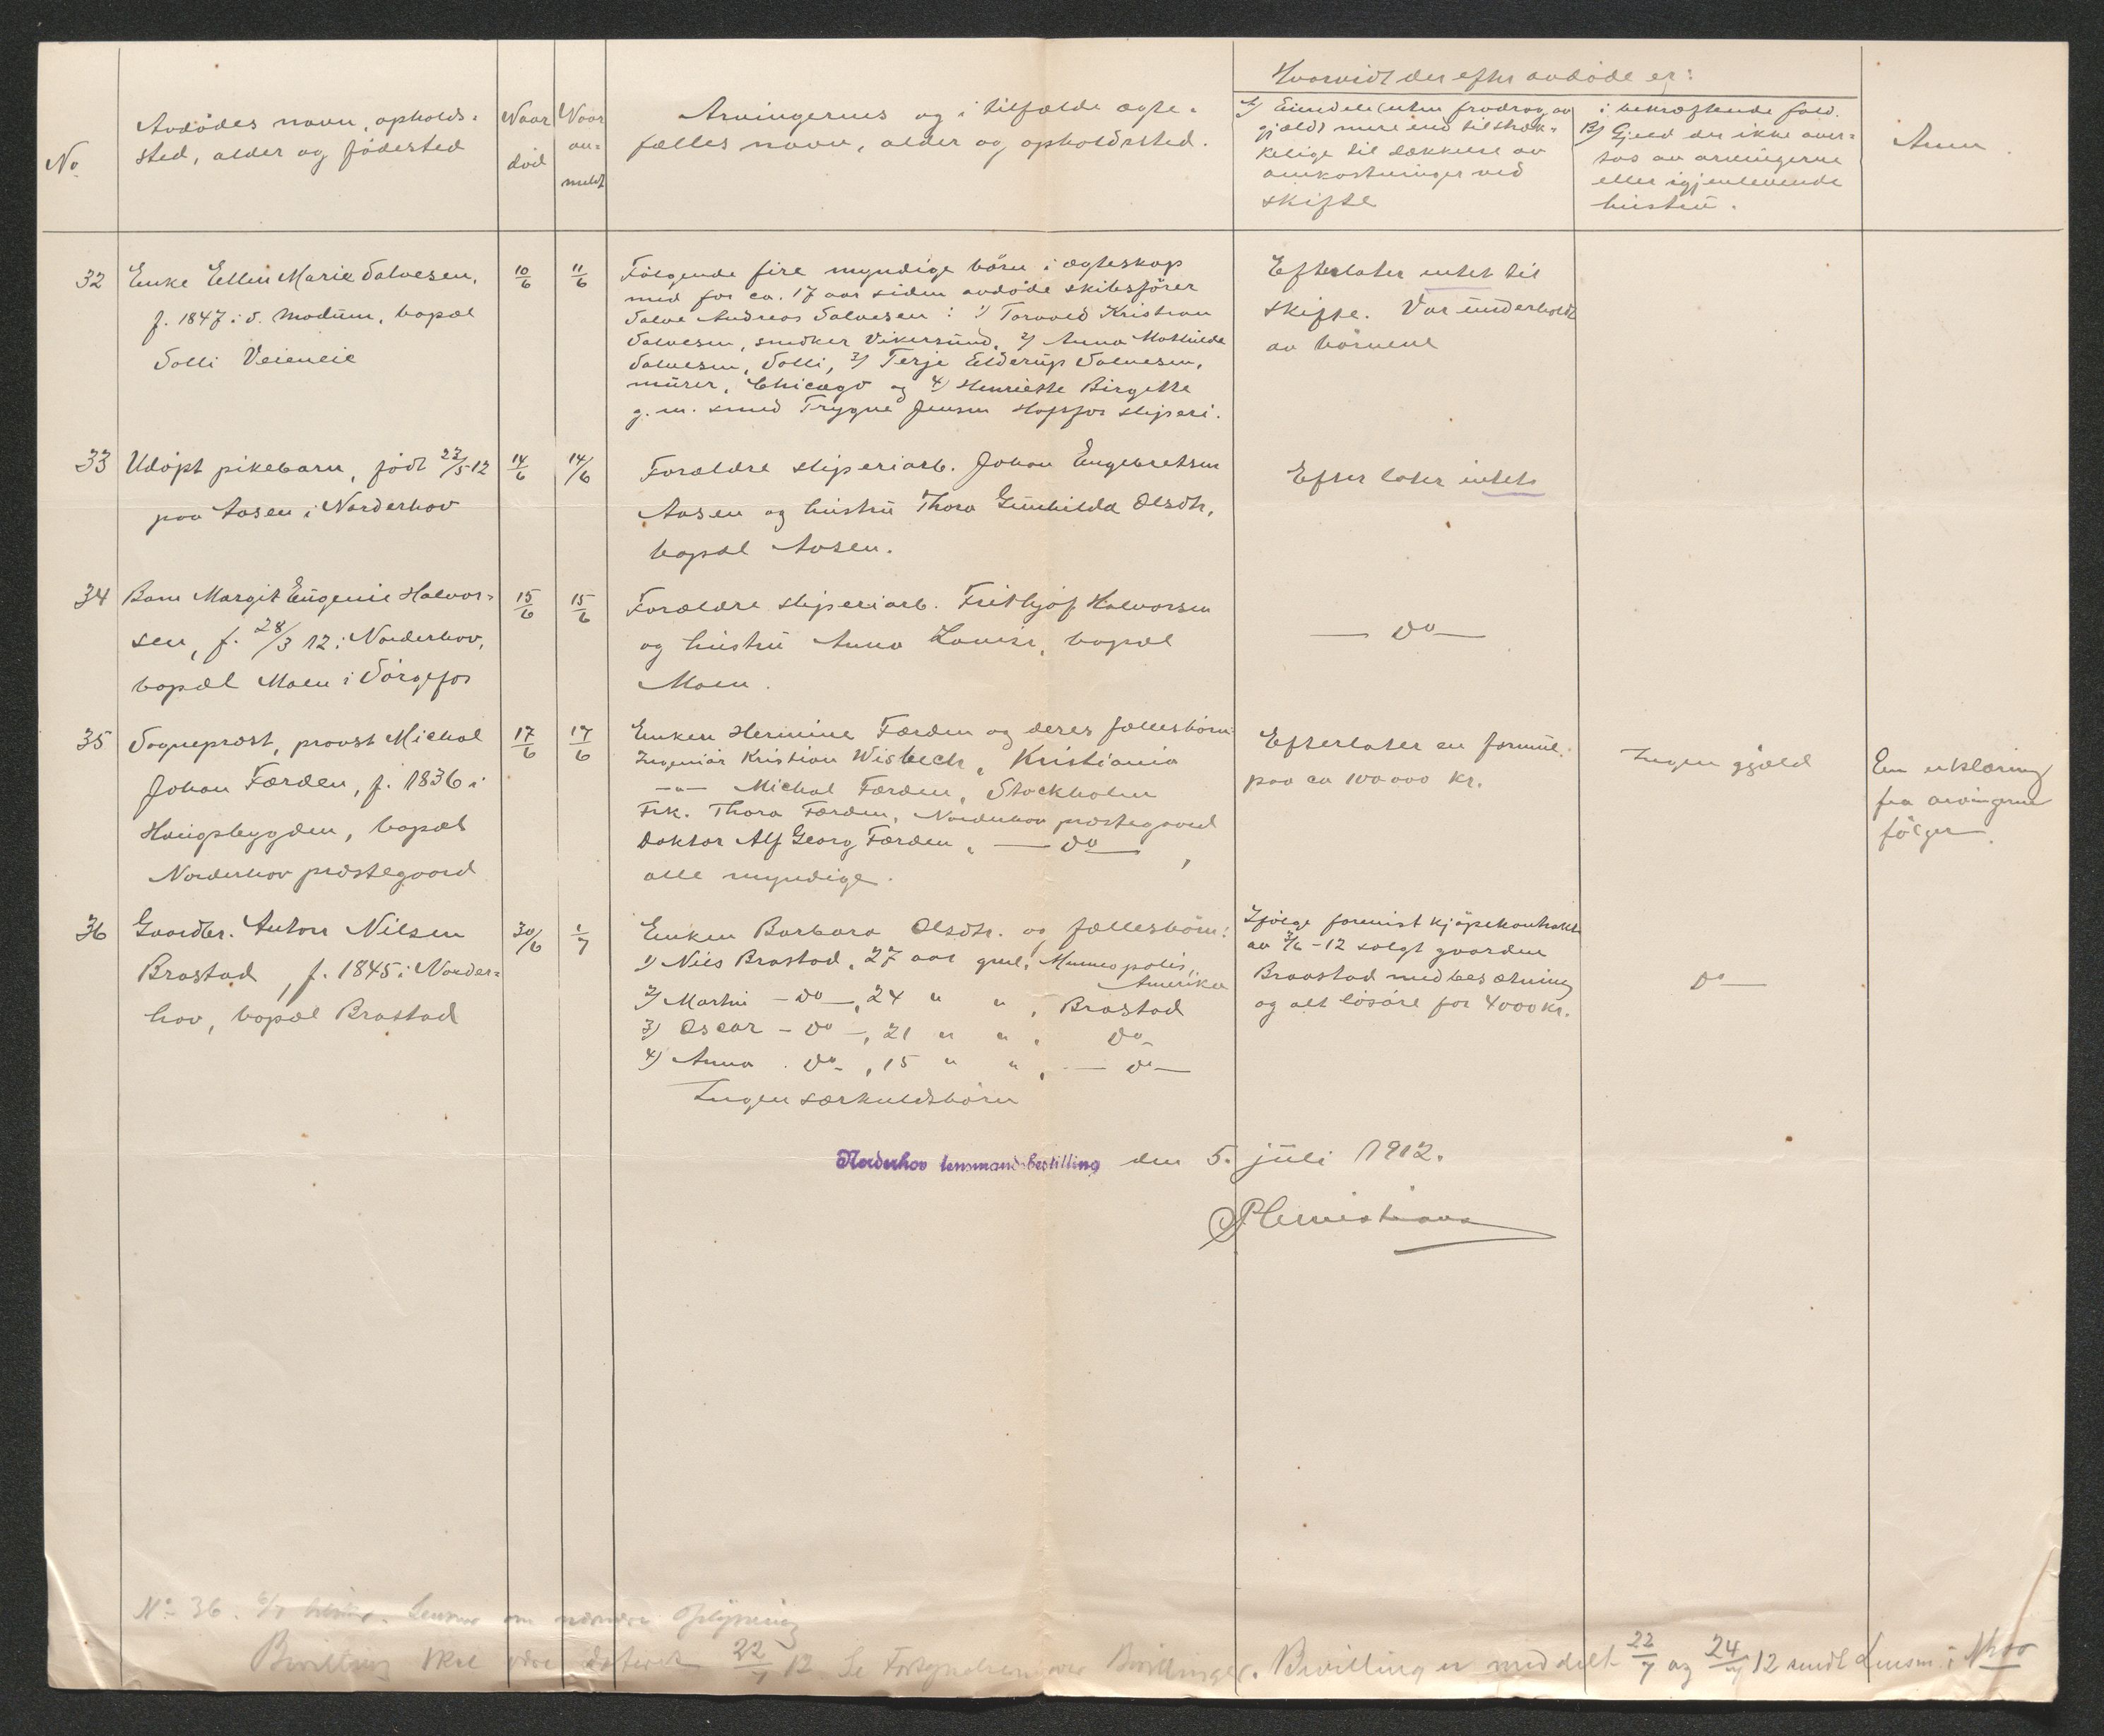 No
Avdödes navn, opholds-
sted, alder og födested
Naar
död
Naar
an-
meldt
Arvingernes og i tilfælde ægte-
fælles navn, alder og opholdssted.
Hvorvidt der efter avdöde er:
A) Eiendele (uten fradrag av
gjæld) mere end tilstræk-
kelige til dækkelse av
omkostninger ved
skifte
i bekræftende fald.
B) Gjeld der ikke over-
tas av arvingerne
eller igjenlevende
hustru.
Anm.
32 Enke Ellen Marie Salvesen,
f. 1847 i S. Modum, bopæl
Solli Veieneie
10/6
11/6
Fölgende fire myndige börn i ægteskap
med for ca. 17 aar siden avdöde skibsförer
Salve Andreas Salvesen: 1) Torvald Kristian
Salvesen, snedker Vikersund, 2) Anna Mathilde
Salvesen, Solli, 3) Terje Elderup Salvesen,
murer, Chicago og 4) Henriette Birgette
g. m. smed Trygve Jensen Hofsfos sliperi.
Efterlater intet til
skifte. Var underholdt
av börnene
33 Udöpt pikebarn, födt 22/5 12
paa Aasen i Norderhov
14/6
14/6
Forældre sliperiarb. Johan Engebretsen
Aasen og hustru Thora Gunhilda Olsdtr,
bopæl Aasen.
Efterlater intet
34 Barn Margit Eugenie Halvor-
sen, f. 28/3 12 i Norderhov,
bopæl Moen i Sörgefos
15/6
15/6
Forældre sliperiarb. Frithjof Halvorsen
og hustru Anna Lovise, bopæl
Moen.
— do —
35 Sogneprest, provst Michal
Johan Færden, f. 1836 i
Haugsbygden, bopæl
Norderhov præstegaard
17/6
17/6
Enken Hermine Færden og deres fællesbörn:
Ingeniör Kristian Wisbech, Kristiania
—"— Michal Færden, Stockholm
Frk. Thora Færden, Norderhov præstegaard
Doktor Alf Georg Færden, — do —,
alle myndige.
Efterlater en formue
paa ca 100000 kr.
Ingen gjæld
En erklæring
fra arvingerne
fölger.
36 Gaardbr. Anton Nilsen
Brastad, f. 1845 i Norder-
hov, bopæl Brastad
30/6
1/7
Enken Barbara Olsdtr. og fællesbörn:
1) Nils Brastad, 27 aar gml, Minneopolis,
Amerika
2) Martin — do —, 24 " ", Brastad
3) Oscar — do —, 21 " ", do —
4) Anna . do —, 15 " ", — do —
Ingen særkuldsbörn
Ifölge forevist kjöpekontrakt
av 3/6 - 12 solgt gaarden
Braastad med besætning
og alt lösöre for 4000 kr.
do —
Norderhov lensmandsbestilling den 5. juli 1912.
No 36. Lensmd om nærmere Oplysning
Bevilling skal være dateret 22/7 12. Se Fortegnelsen over Bevillinger. Bevilling er meddelt 22/7 og 24/7 12 sendt Lensm. i Nhov